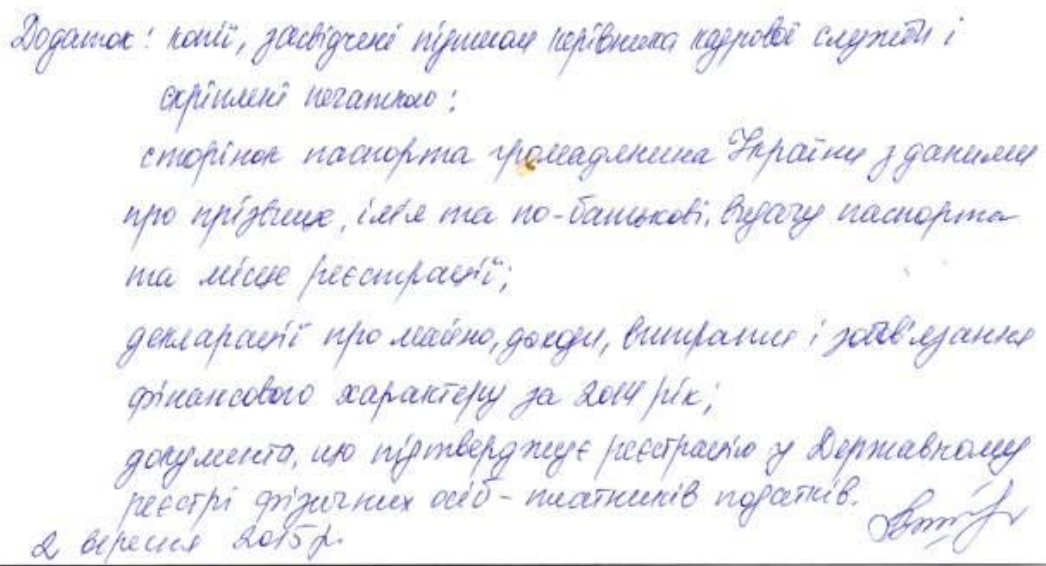 Додаток: копії, засвідчені підписом керівника кадрової служби і
скріплені печаткою:
сторінок паспорта громадянина України з даними
про прізвище, ім'я та по-батькові, видачу паспорта
та місце реєстрації;
декларації про майно, доходи, витрати і зобов'язання
фінансового характеру за 2014 рік;
документа, що підтверджує реєстрацію у Державному
реєстрі фізичних осіб - платників податків.
2 вересня 2015р.